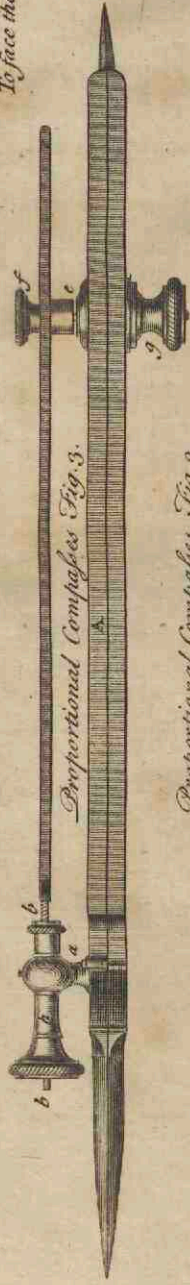 To face the
Proportional Compasses Fig. 3.
f
e
g
A
b
a
h
b
Proportional Compasses Fig.